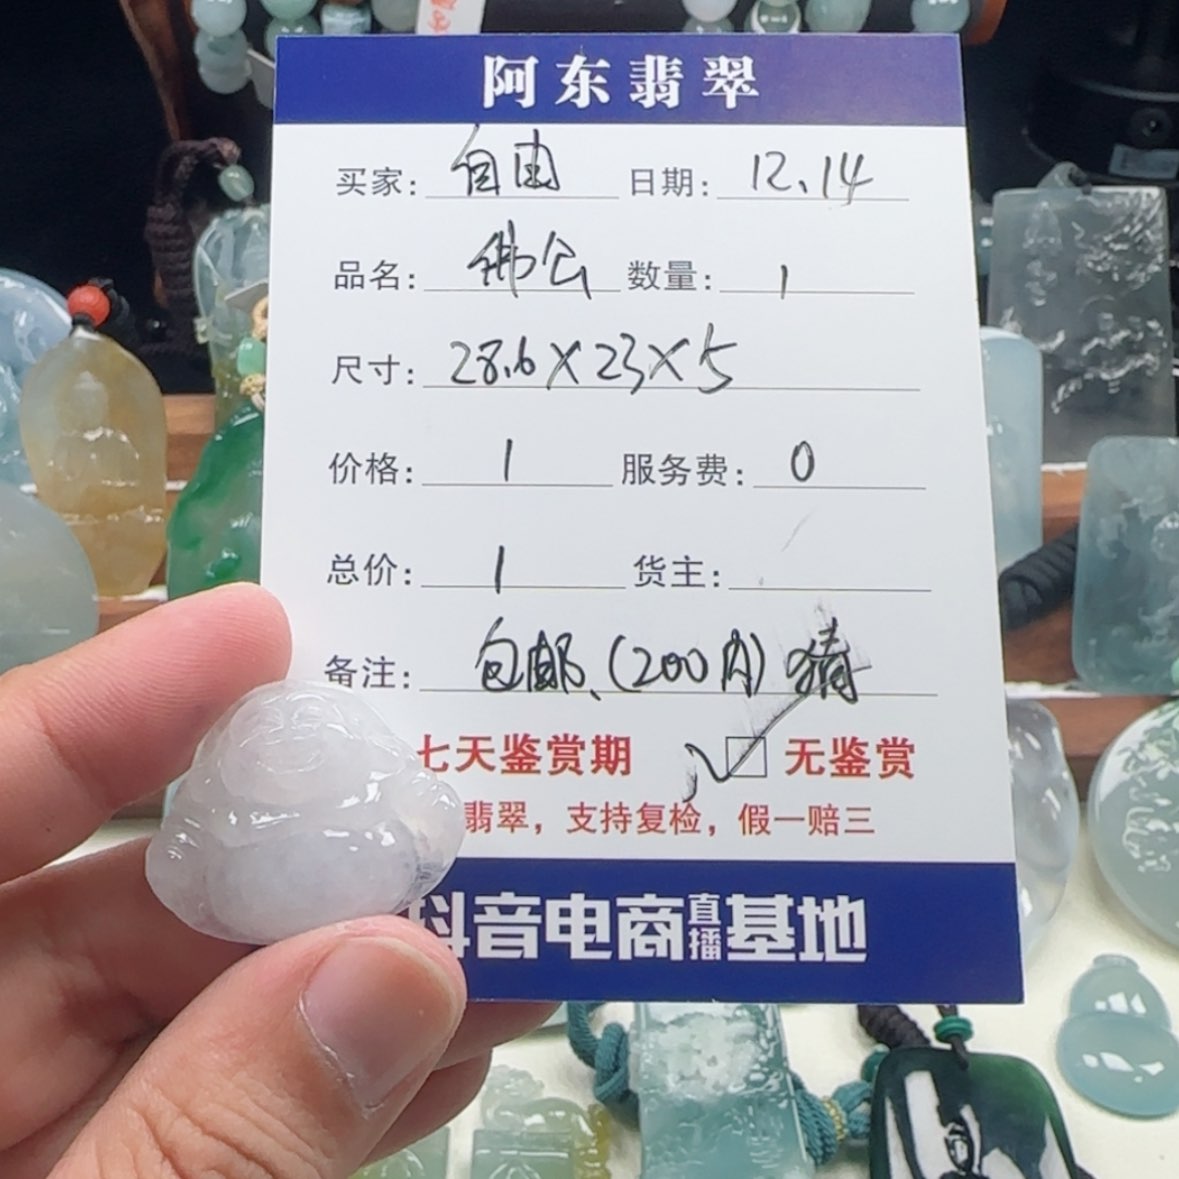 阿东翡翠
买家: 自由 日期: 12.14
品名: 佛公 数量: 1
尺寸: 28.6×23×5
价格: 1 服务费: 0
总价: 1 货主:
备注: 包邮、(200内)猜
七天鉴赏期 √ 无鉴赏
翡翠，支持复检，假一赔三
抖音电商直播基地